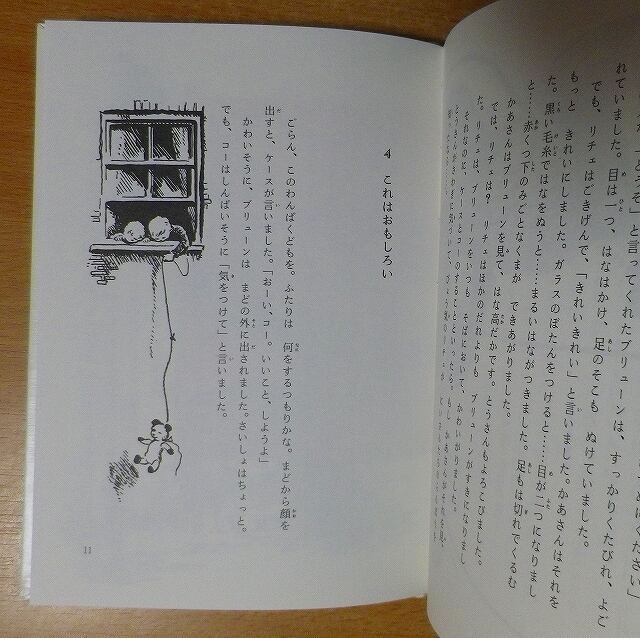 と言ってくれたブリューンは、すっかりくたびれ、よご
れていました。目は一つ、はなはかけ、足のそこも　ぬけていました。
でも、リチェはごきげんで、「きれいきれい」と言いました。かあさんはそれを
もっと　きれいにしました。ガラスのぼたんをつけると……目が二つになりまし
た。黒い毛糸ではなをぬうと……まるいはながつきました。足もは切れでくるむ
と……赤くつ下のみごとなくまが　できあがりました。
かあさんはブリューンを見て、はな高だかです。とうさんもよろこびました。
では、リチェは？　リチェはほかのだれよりも　ブリューンがすきになりまし
た。リチェは、ブリューンをいつも　そばにおいて、かわいがりました。
それなのに、ケースとコーのすることといったら。
4　これはおもしろい
ごらん、このわんぱくどもを。ふたりは　何をするつもりかな。まどから顔を
出すと、ケースが言いました。「おーい、コー。いいこと、しようよ」
かわいそうに、ブリューンは　まどの外に出されました。さいしょはちょっと。
でも、コーはしんぱいそうに「気をつけて」と言いました。
11